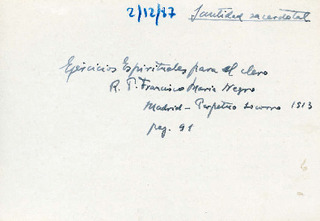 2/12/87
Santidad sacerdotal
Ejercicios Espirituales para el clero
R. P. Francisco Maria Negro
Madrid - Perpetuo Socorro 1913
pag. 91